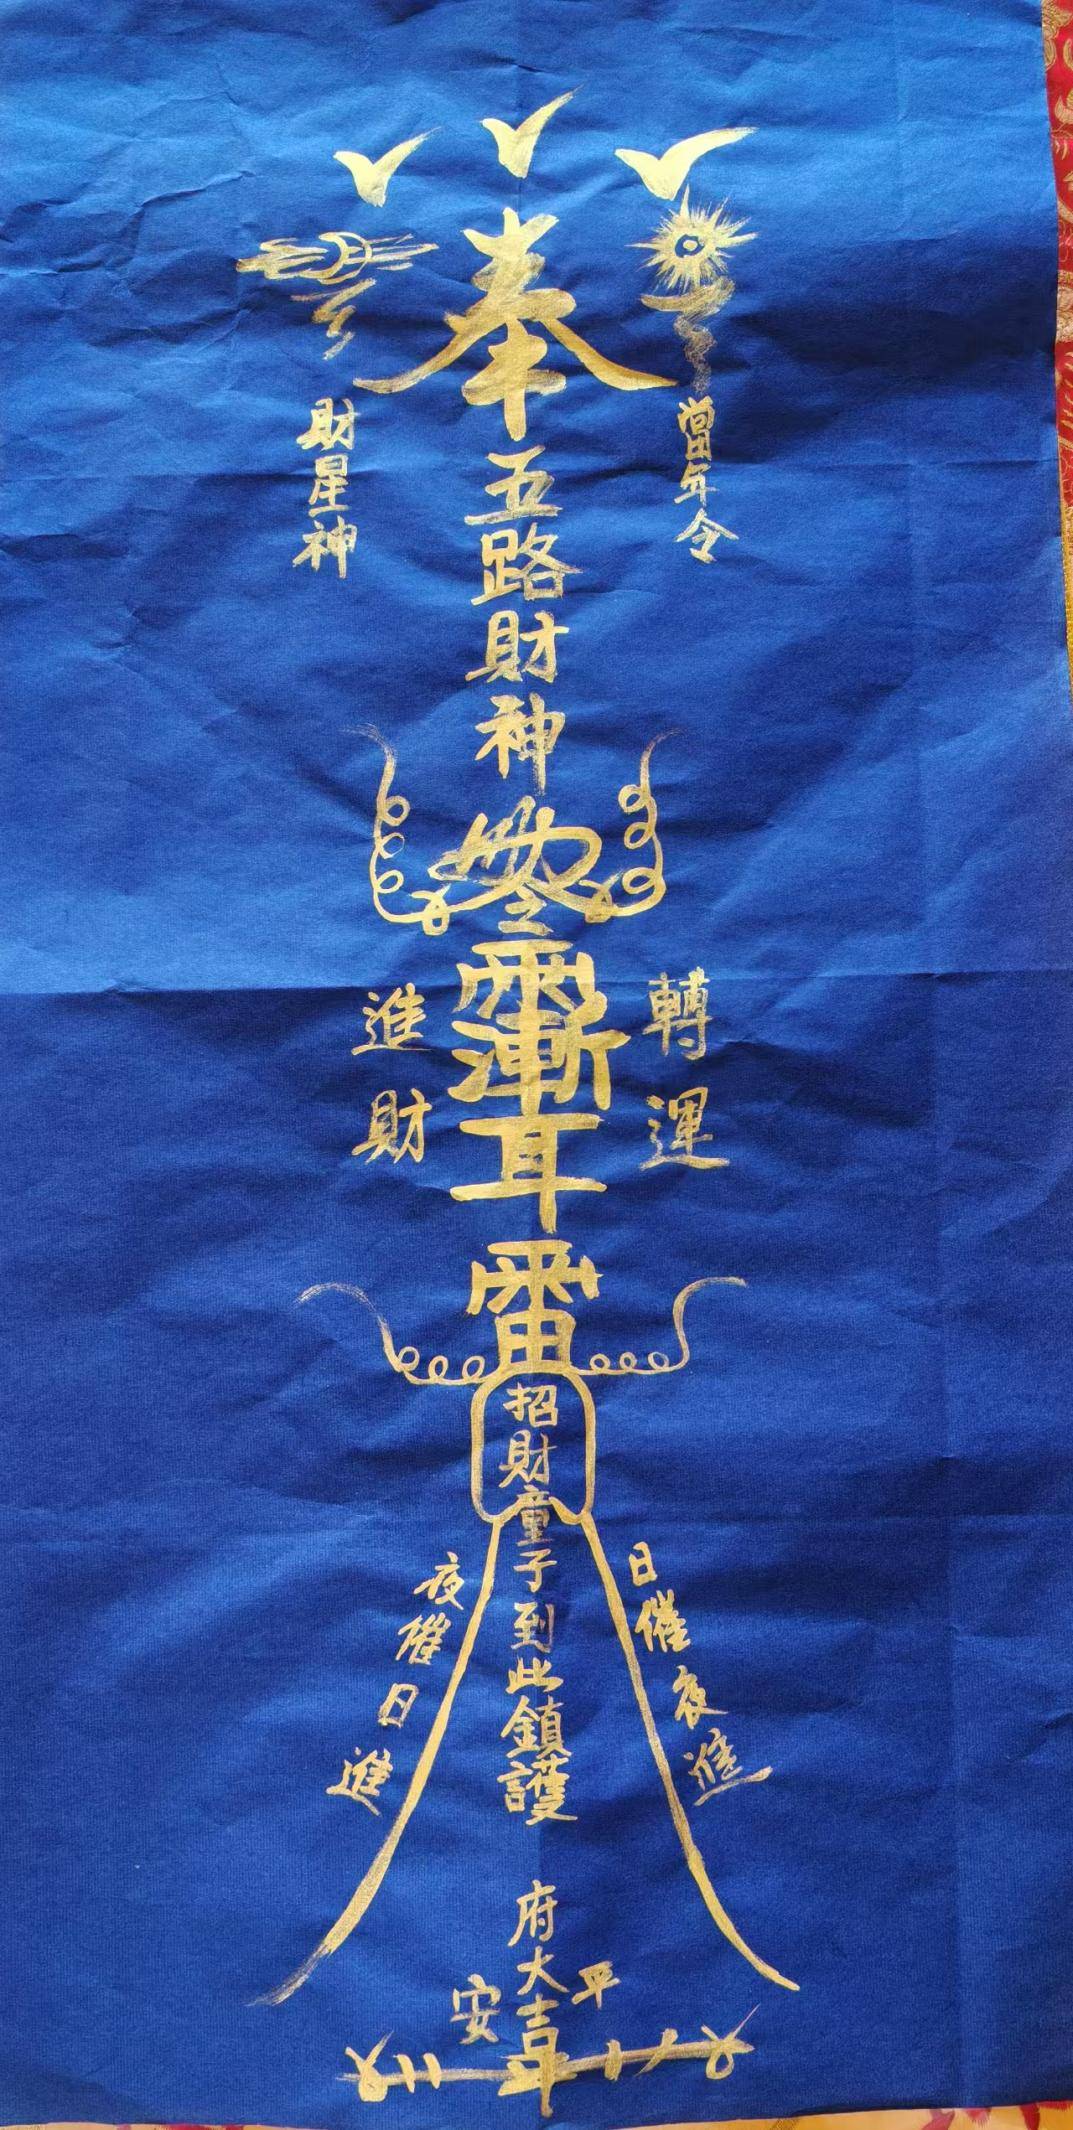 奉
五路財神
當年令
財星神
轉運
進財
雷
招財童子到此鎮護
日催夜進
夜催日進
府大吉
平安